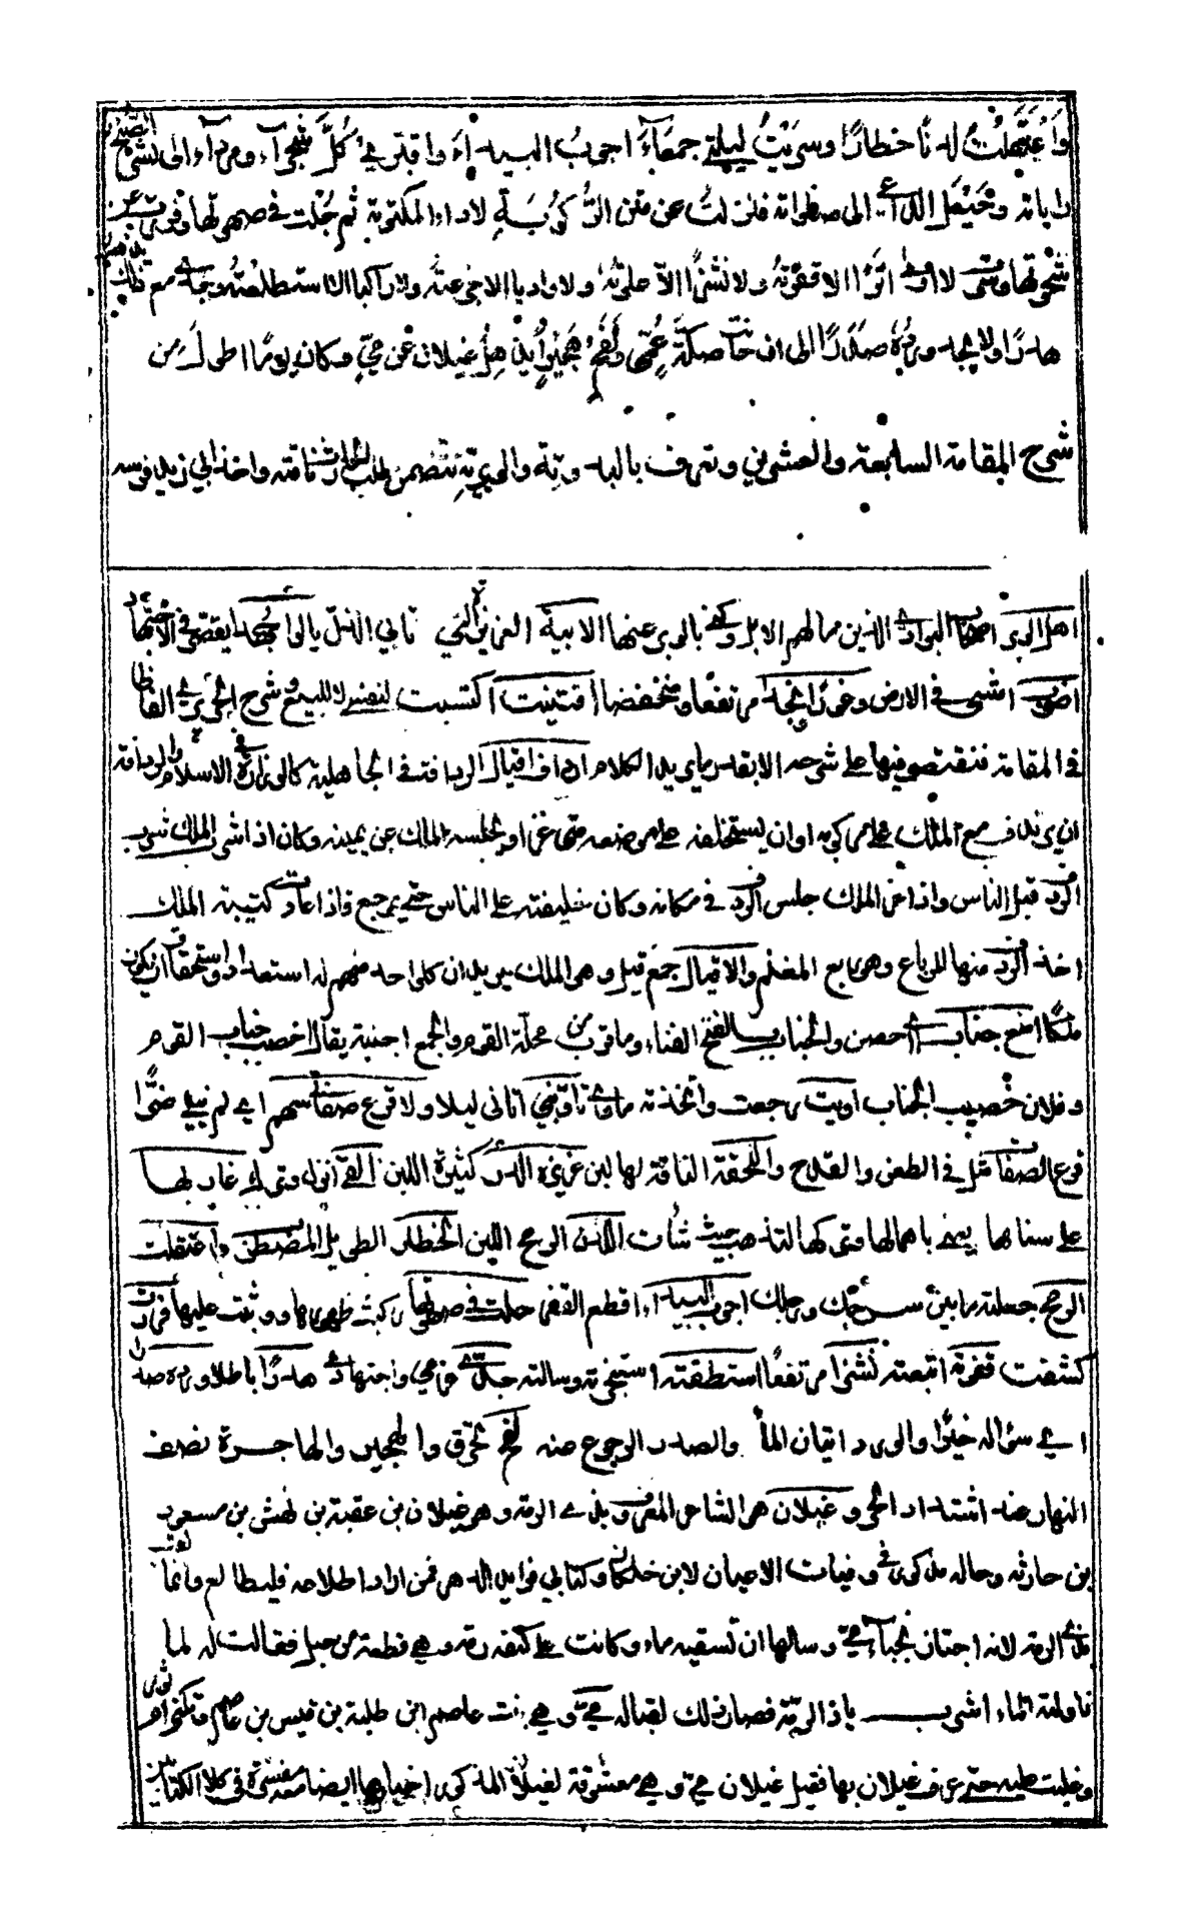 وَاعْتَقَلْتُ لدنًا خطارًا وسريتُ ليلتي جمعآءَ اجوبُ البيداءَ واقتري كُلَّ شجرآء ومردآء الى نشر الصبح
راياته وحَيْعَلَ الداعي الى صلواته فنزلتُ عن متن الرَّكُوبَةِ لاداء المكتوبة ثم جُلت في صهوتها وفررت عن
شحوتها وسرت لا ارى اثرًا الا قفوته ولا نشزًا الّا علوته ولا واديا الا جزعته ولا راكبا الا استطلعته وجدي مع ذلك يذهب
هدرًا ولا يجد ورده صَدَرًا الى ان حآنت صكّة عُمَيّ ولفح هجيرٍ يُذهلُ غيلان عن ميّ وكان يومًا اطول من
شرح المقامة السابعة والعشرين وتعرف بالبدوية والوبرية تتضمن طلب الحارث ناقته واخذ ابي زيد فرسه
اهل الوبر اصحاب البوادي الذين مالهم الابل وكنى بالوبر عنها الابية العزيزة التي تابي الذل يالوا جُهدا يقصر في الاجتهاد
اضرب امشي في الارض وغورًا ونجدا مرتفعا ومنخفضا اقتنيت اكتسبت لنفسي لا للبيع وشرح الحريري الفاظا
في المقامة فنقتصر فيها على شرحه الا بقدر ما يريد الكلام ارداف اقيال الردافة في الجاهلية كالوزارة في الاسلام والردافة
ان يردف مع الملك على مركوبه او ان يستخلفه على موضعه متى غزا ويجلسه الملك عن يمينه وكان اذا شرب الملك شرب
الردف قبل الناس واذا غزا الملك جلس الردف في مكانه وكان خليفته على الناس حتى يرجع واذا عادت كتيبة الملك
اخذ الردف منها المرباع وهو ربع المغنم والاقيال جمع قيل وهو الملك يريد ان كل واحد منهم له استعداد واستحقاق ان يكون
ملكا امنع جناب احصن والجناب بالفتح الفناء وما قرب من محلة القوم والجمع اجنبة يقال اخصب جناب القوم
وفلان خصيب الجناب اويت رجعت واتخذته ماوى تاوّبني اتاني ليلا ولا قرع صفاتي سهم اي لم ينلني ضرّ
قرع الصفا مثل في الطعن والقدح واللقحة الناقة لها لبن غزيرة الدر كثيرة اللبن القي انزل وترك غاربها
على سنامها يعني باهمالها وتركها لتذهب حيث شأت اللدن الرمح اللين الخطار الطويل المضطرب واعتقلت
الرمح جعلته ما بين سرجك ورجلك اجوب البيداء اقطع القفر جلت في صهوتها ركبت ظهرها ووثبت عليها فررت
كشفت قفوته اتبعته نشزا مرتفعًا استطلقته استخبرته وسالته جدّي عزمي واجتهادي هدرًا باطلا وورده صدرا
اي سؤاله خبرًا والورد اتيان المأ والصدر الرجوع عنه لفح تحرق والهجير والهاجرة نصف
النهار عند اشتداد الحر وغيلان هو الشاعر المعروف بذي الرمة وهو غيلان بن عقبة بن نهيش بن مسعود
بن حارثه وحاله مذكور في وفيات الاعيان لابن خلكان وكتابي فوايد الدهر فمن اراد اطلاعه فليطالع وانما لقب
بذي الرمة لانه اجتاز بخبآء ميّ وسالها ان تسقيه ماء وكانت على كتفه رمة وهي قطعة من حبل فقالت له لما
ناولته المآء اشرب ياذا الرمّة فصار ذلك لقبا له ميّ وهي بنت عاصم ابن طلبة بن قيس بن عاصم وتكنى ام ثور
وغلبت عليه حتى عرف غيلان بها فقيل غيلان ميّ وهي معشوقة لغيلان المذكور اخبارهما ايضا مفسّرة في كلا الكتابين